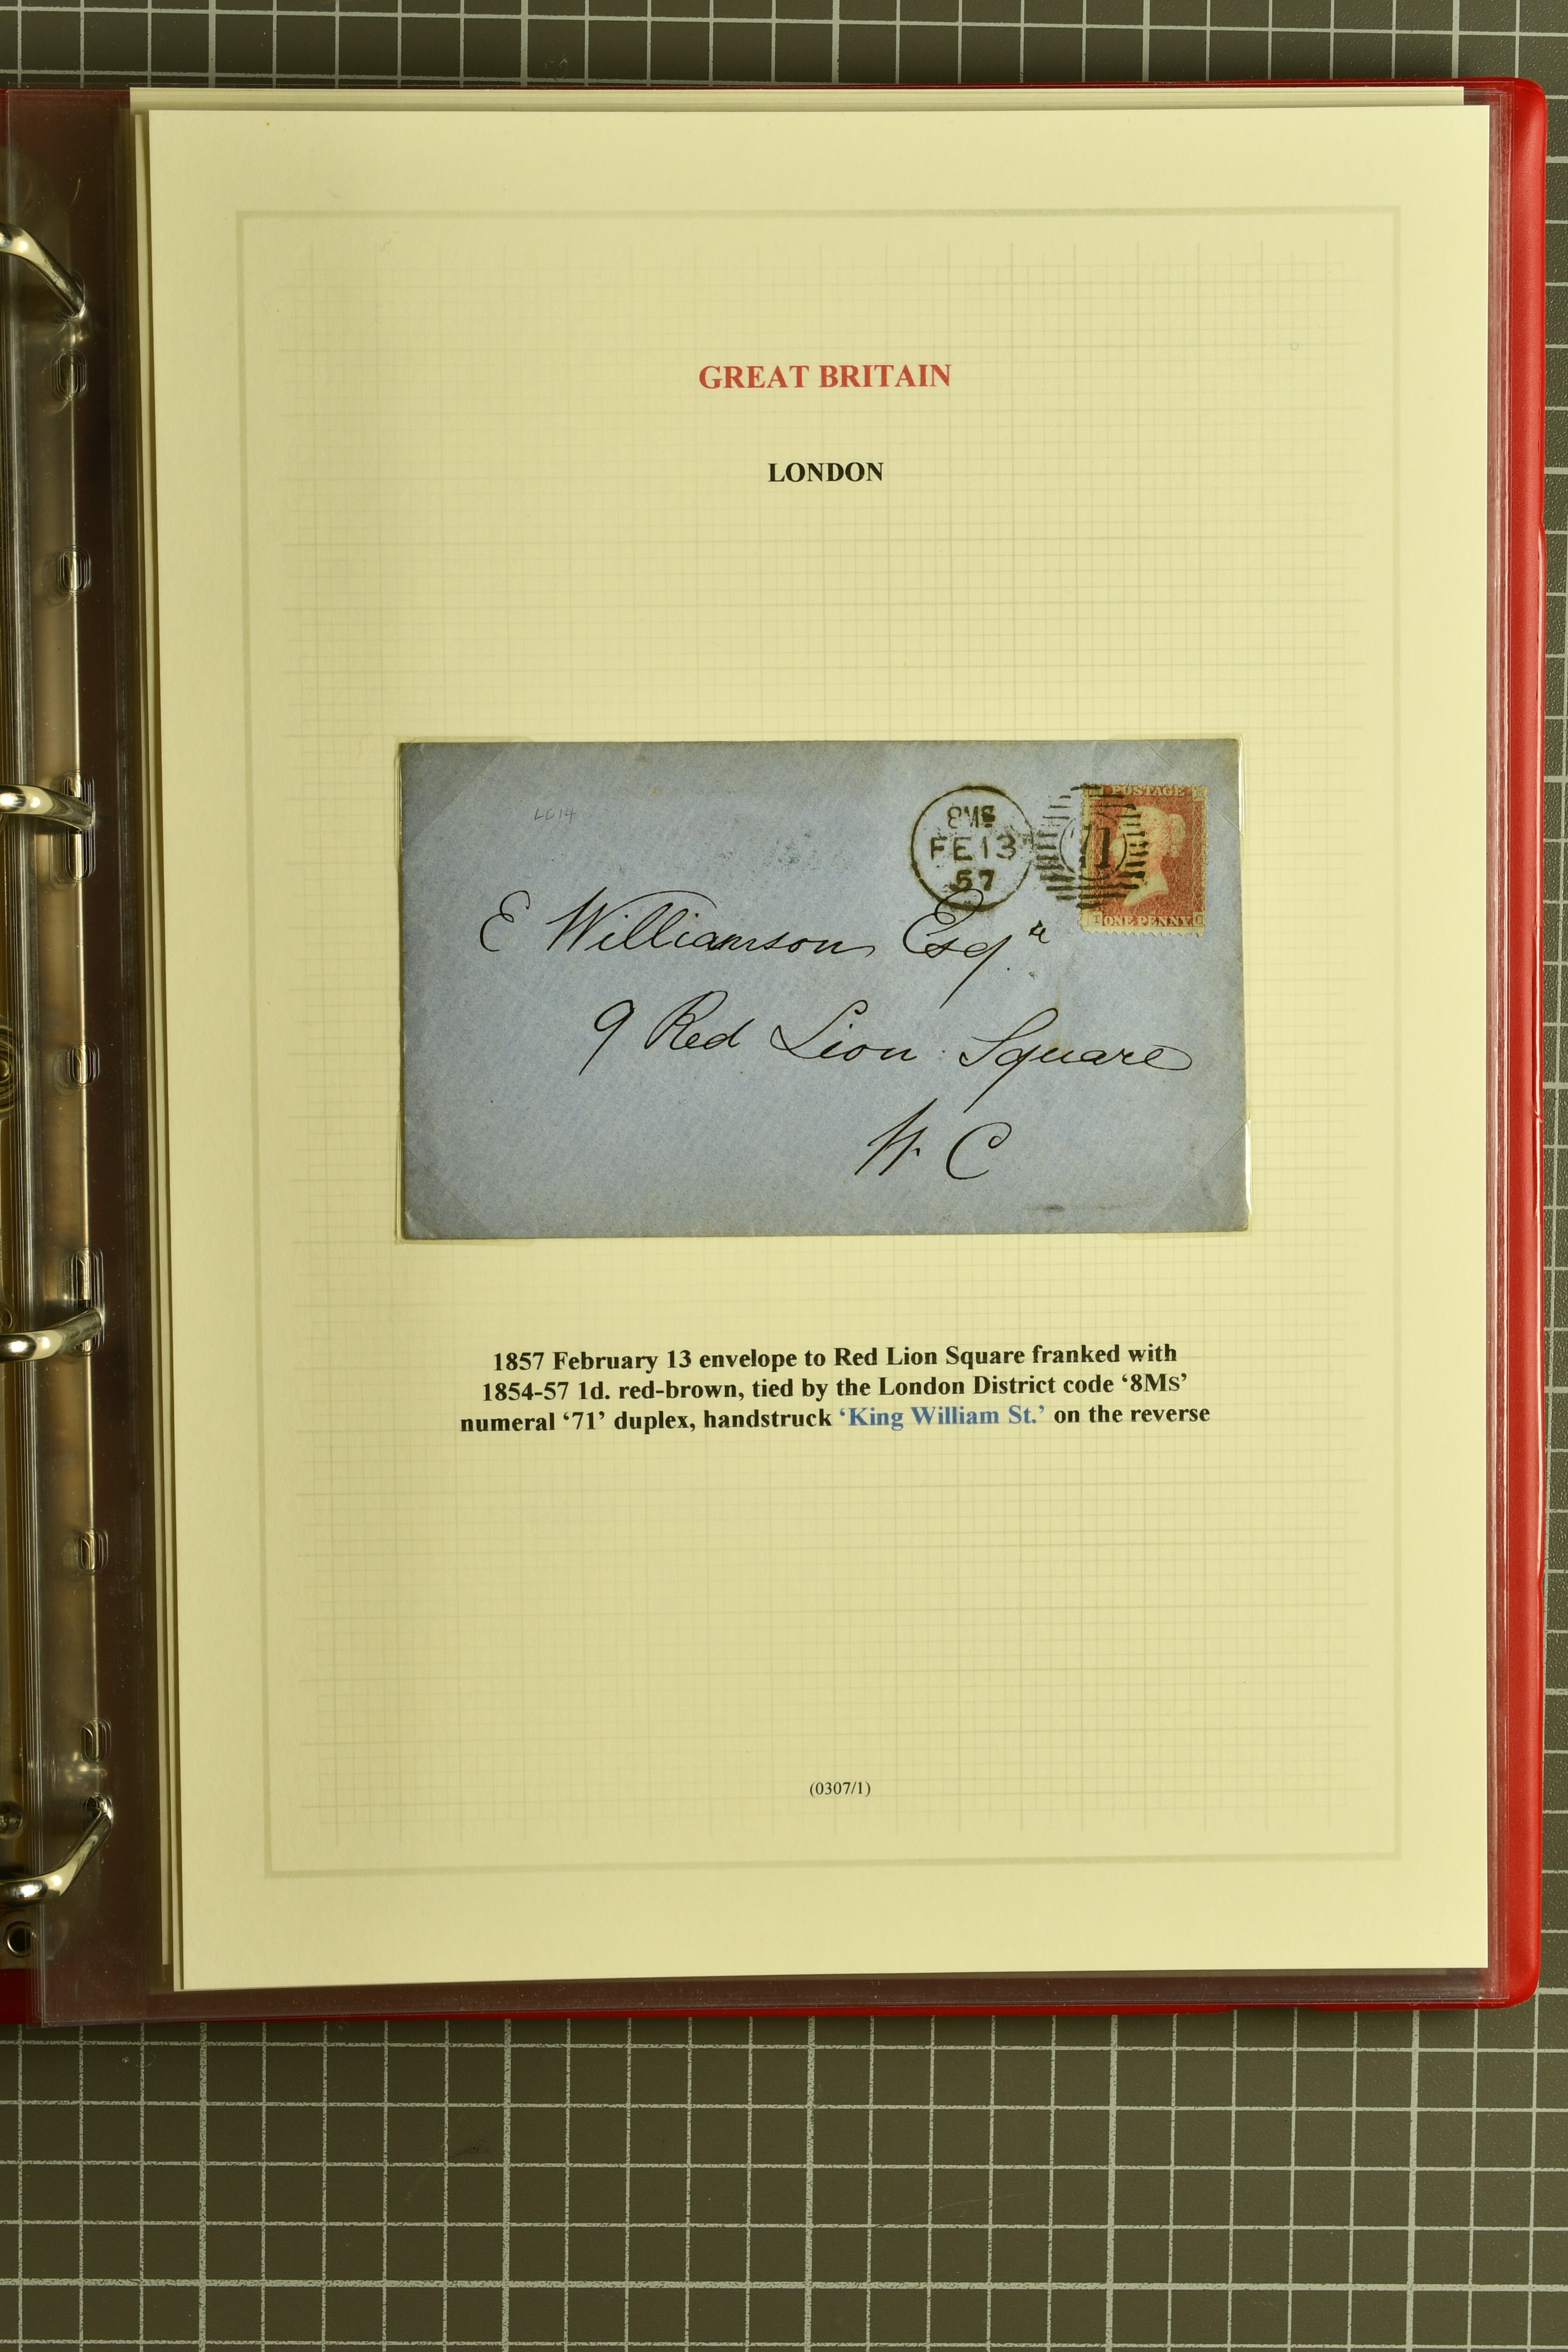 GREAT BRITAIN
LONDON
8MS
FE 13
57
71
POSTAGE
ONE PENNY
E Williamson Esqre
9 Red Lion Square
W. C
1857 February 13 envelope to Red Lion Square franked with
1854-57 1d. red-brown, tied by the London District code ‘8MS’
numeral ‘71’ duplex, handstruck ‘King William St.’ on the reverse
(0307/1)